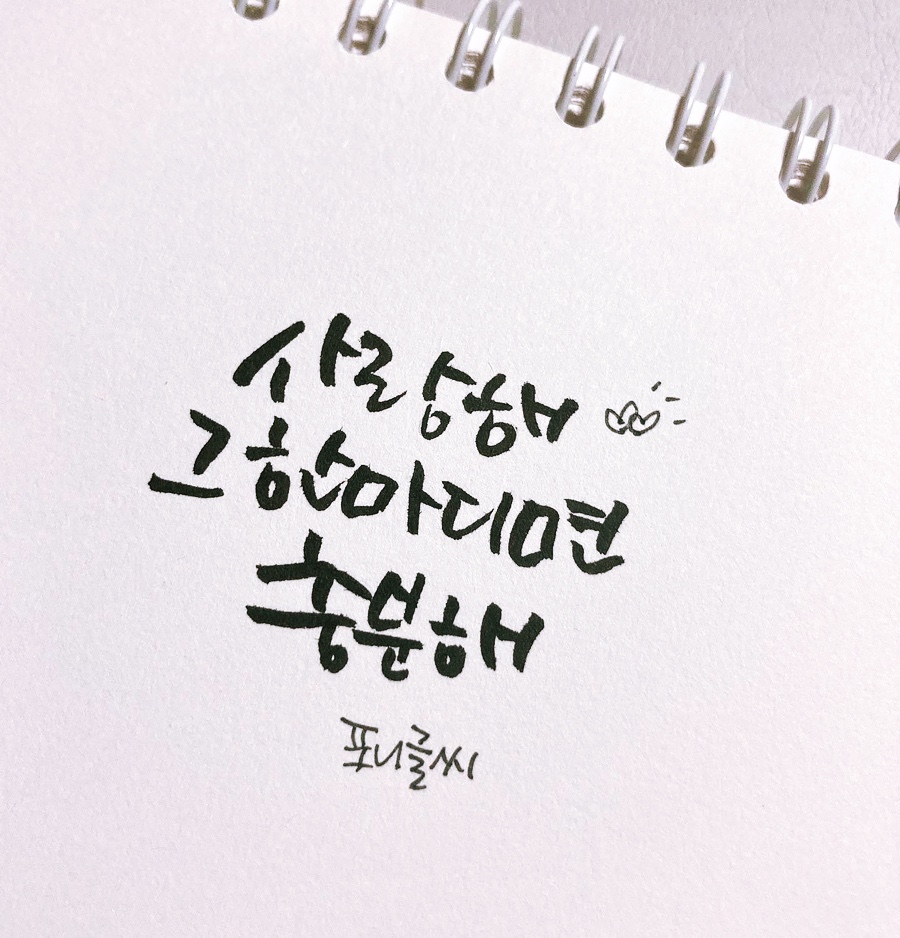 사랑해
그 한마디면
충분해
포니글씨